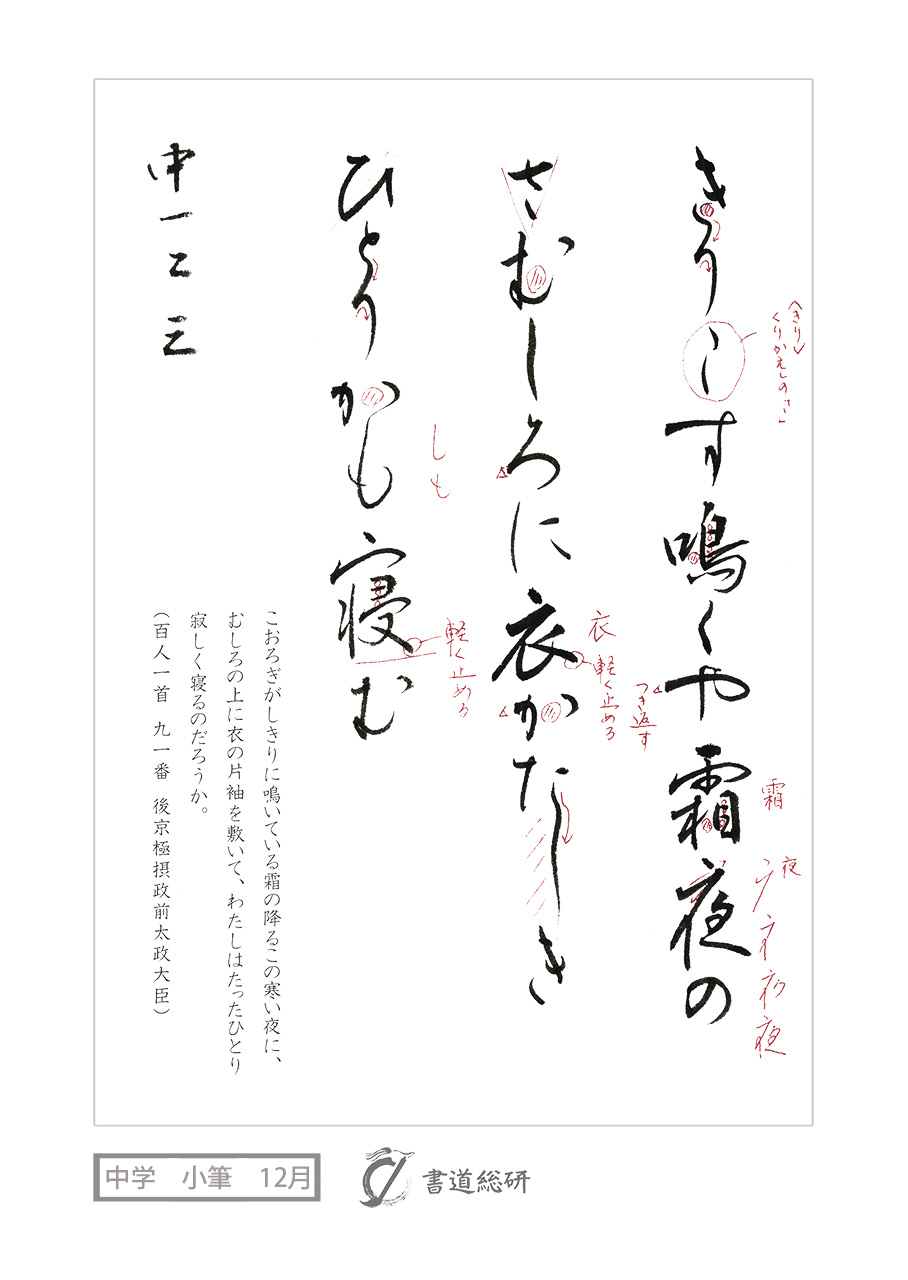 きりゝす鳴くや霜夜の
さむしろに衣かたしき
ひとりかも寝む
中一二三
〈きり〉
くりかえしの「ゝ」
しも
衣
軽く止める
つき返す
軽く止める
霜
夜
夜
こおろぎがしきりに鳴いている霜の降るこの寒い夜に、
むしろの上に衣の片袖を敷いて、わたしはたったひとり
寂しく寝るのだろうか。
(百人一首 九一番 後京極摂政前太政大臣)
中学 小筆 12月
書道総研